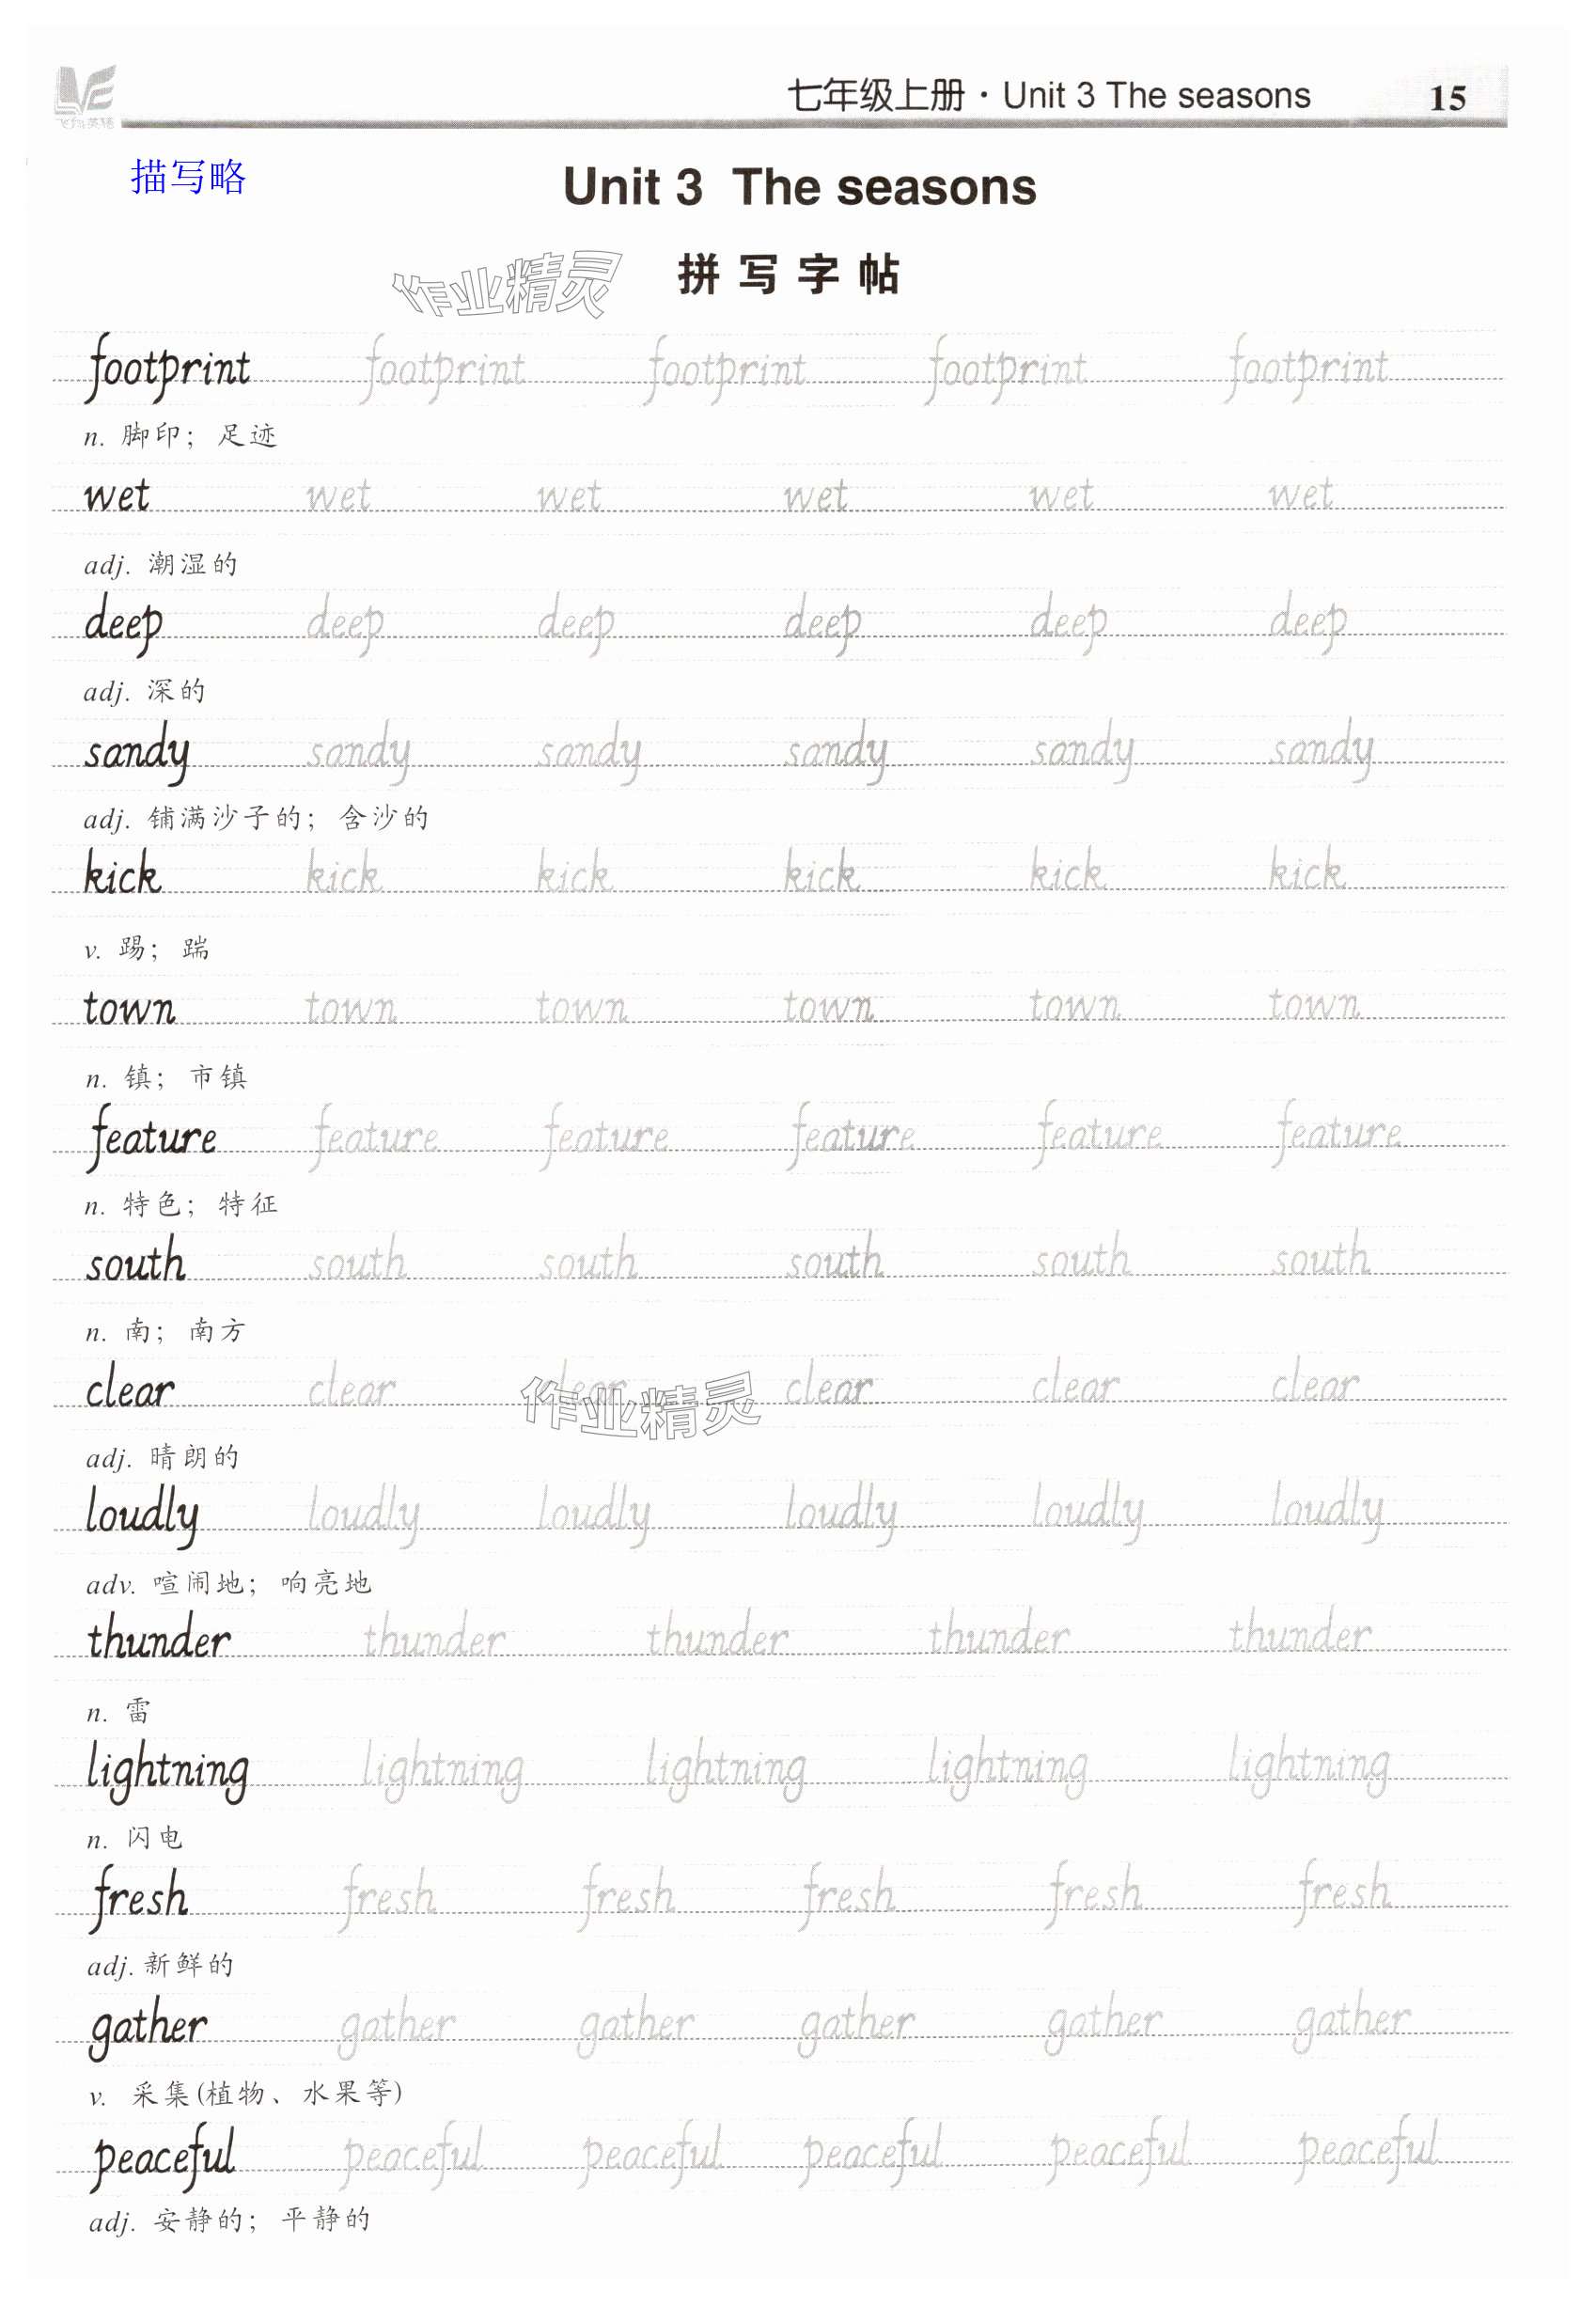 七年级上册·Unit 3 The seasons 15
描写略
Unit 3 The seasons
作业精灵
拼写字帖
footprint footprint footprint footprint footprint
n. 脚印；足迹
wet wet wet wet wet wet
adj. 潮湿的
deep deep deep deep deep deep
adj. 深的
sandy sandy sandy sandy sandy sandy
adj. 铺满沙子的；含沙的
kick kick kick kick kick kick
v. 踢；踹
town town town town town town
n. 镇；市镇
feature feature feature feature feature feature
n. 特色；特征
south south south south south south
n. 南；南方
clear clear clear clear clear clear
作业精灵
adj. 晴朗的
loudly loudly loudly loudly loudly loudly
adv. 喧闹地；响亮地
thunder thunder thunder thunder thunder
n. 雷
lightning lightning lightning lightning lightning
n. 闪电
fresh fresh fresh fresh fresh fresh
adj. 新鲜的
gather gather gather gather gather gather
v. 采集(植物、水果等)
peaceful peaceful peaceful peaceful peaceful peaceful
adj. 安静的；平静的